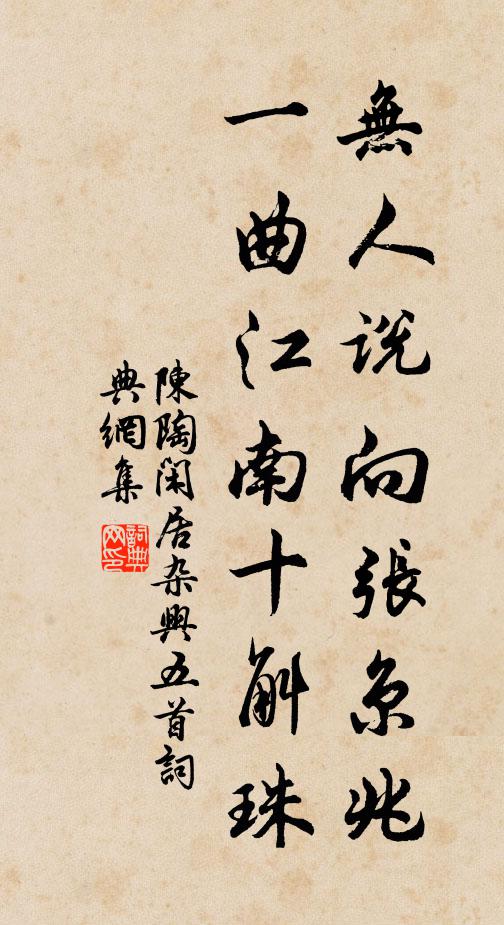 無人説向張京兆
一曲江南十斛珠
陳陶閑居杂興五首詞
典網集
詞典
网印